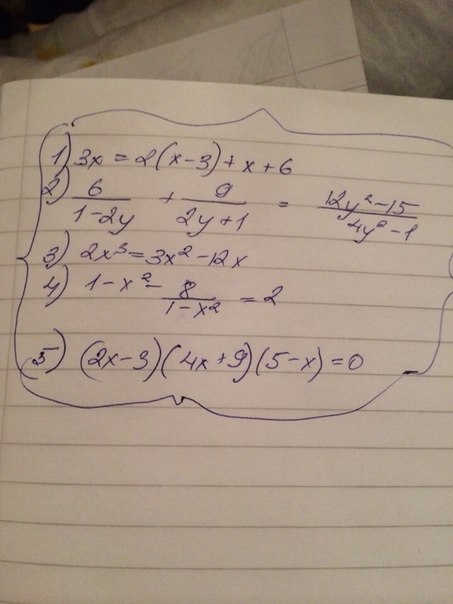 1) 3x = 2(x-3)+x+6
2) 6/(1-2y) + 9/(2y+1) = (12y²-15)/(4y²-1)
3) 2x³=3x²-12x
4) 1-x²- 8/(1-x²) =2
5) (2x-3)(4x+9)(5-x)=0